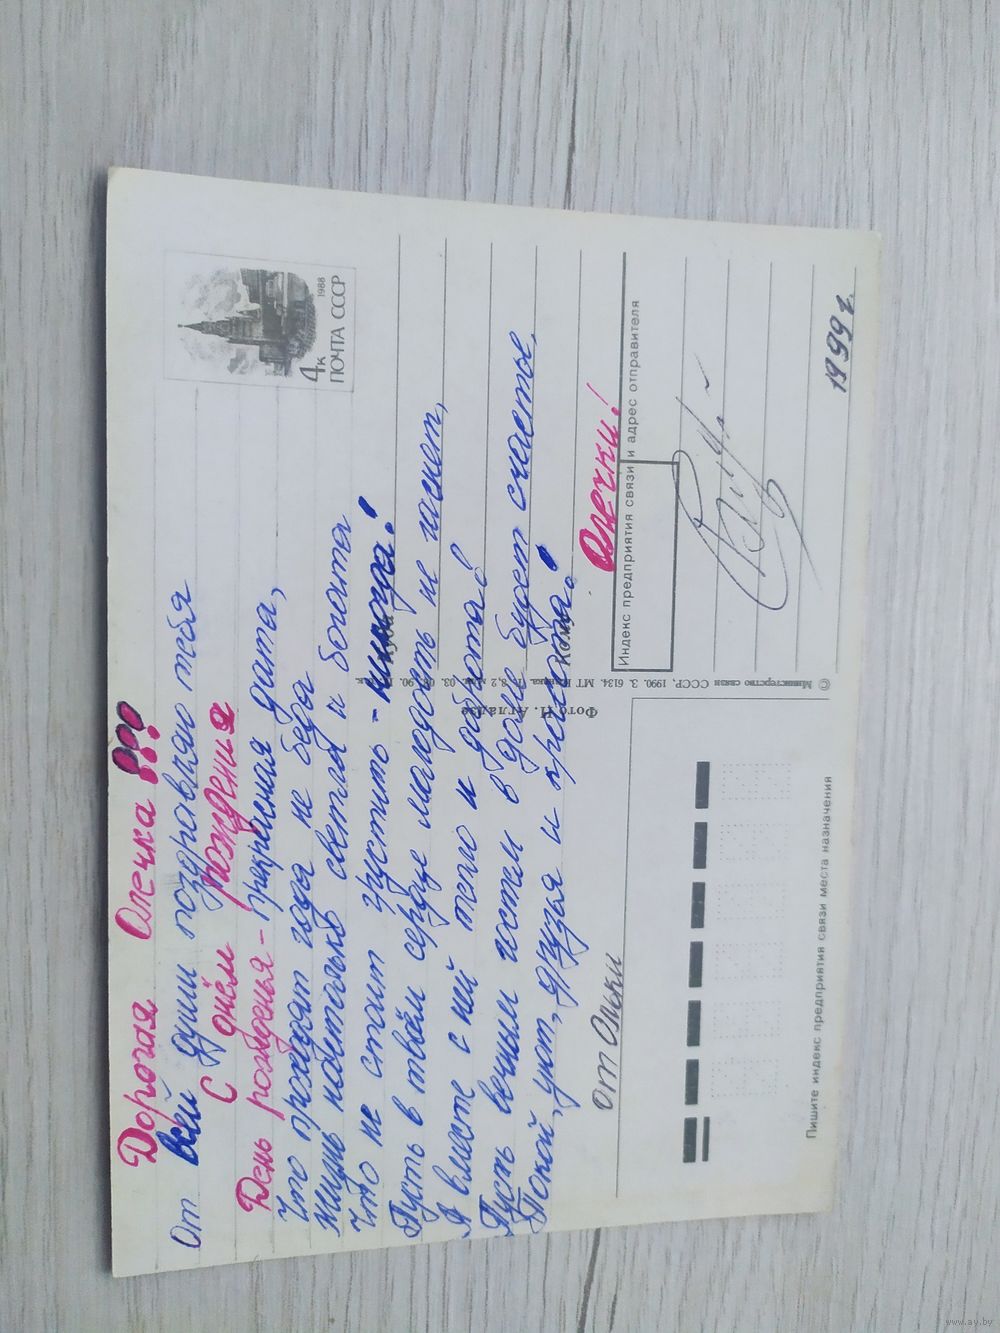 Дорогая Олечка!!!
От всей души поздравляю тебя
С днём рождения
День рожденья - прекрасная дата,
Что проходят года не беда
Жизнь настолько светла и богата
Что не стоит грустить - никогда!
Пусть в твоём сердце молодость не гаснет,
А вместе с ней тепло и доброта!
Пусть вечным гостем в доме будет счастье,
Покой, уют, друзья и красота!
от Ольки
Олечки!
4к
1988
ПОЧТА СССР
Куда
Кому
Индекс предприятия связи и адрес отправителя
1999 г.
© Министерство связи СССР, 1990. З. 6134. МТ Гознака.
Фото П. Агладзе
Пишите индекс предприятия связи места назначения
www.ay.by